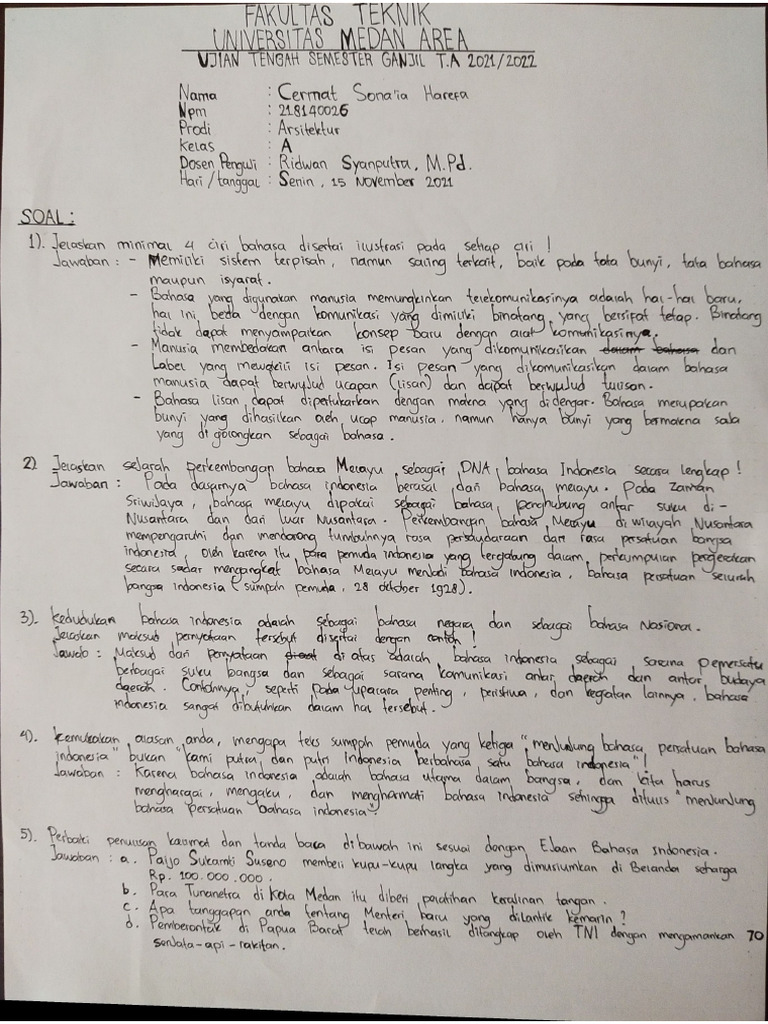 FAKULTAS TEKNIK
UNIVERSITAS MEDAN AREA
UJIAN TENGAH SEMESTER GANJIL T.A 2021/2022
Nama : Cermat Sona'ia Harefa
Npm : 218140026
Prodi : Arsitektur
Kelas : A
Dosen Penguji : Ridwan Syahputra, M.Pd.
Hari/tanggal : Senin, 15 November 2021
SOAL :
1). Jelaskan minimal 4 ciri bahasa disertai ilustrasi pada setiap ciri !
Jawaban : - Memiliki sistem terpisah, namun saling terkait, baik pada tata bunyi, tata bahasa
maupun isyarat.
- Bahasa yang digunakan manusia memungkinkan telekomunikasinya adalah hal-hal baru,
hal ini beda dengan komunikasi yang dimiliki binatang yang bersifat tetap. Binatang
tidak dapat menyampaikan konsep baru dengan alat komunikasinya.
- Manusia membedakan antara isi pesan yang dikomunikasikan dalam bahasa dan
Label yang mewakili isi pesan. Isi pesan yang dikomunikasikan dalam bahasa
manusia dapat berwujud ucapan (lisan) dan dapat berwujud tulisan.
- Bahasa lisan dapat dipertukarkan dengan makna yang didengar. Bahasa merupakan
bunyi yang dihasilkan oleh ucap manusia, namun hanya bunyi yang bermakna saja
yang di golongkan sebagai bahasa.
2) Jelaskan sejarah perkembangan bahasa Melayu sebagai DNA bahasa Indonesia secara lengkap !
Jawaban : Pada dasarnya bahasa indonesia berasal dari bahasa melayu. Pada Zaman
Sriwijaya, bahasa melayu dipakai sebagai bahasa penghubung antar suku di-
Nusantara dan dari luar Nusantara. Perkembangan bahasa Melayu di wilayah Nusantara
mempengaruhi dan mendorong tumbuhnya rasa persaudaraan dan rasa persatuan bangsa
indonesia, oleh karena itu para pemuda indonesia yang tergabung dalam perkumpulan pergerakan
secara sadar mengangkat bahasa Melayu menjadi bahasa Indonesia, bahasa persatuan seluruh
bangsa indonesia (sumpah pemuda, 28 oktober 1928).
3). Kedudukan bahasa indonesia adalah sebagai bahasa negara dan sebagai bahasa Nasional.
Jelaskan maksud pernyataan tersebut disertai dengan contoh !
Jawab : Maksud dari pernyataan di atas adalah, bahasa indonesia sebagai sarana pemersatu
berbagai suku bangsa dan sebagai sarana komunikasi antar daerah dan antar budaya
daerah. Contohnya, seperti pada upacara penting, peristiwa, dan kegiatan lainnya, bahasa
indonesia sangat dibutuhkan dalam hal tersebut.
4). Kemukakan alasan anda, mengapa teks sumpah pemuda yang ketiga "menjunjung bahasa persatuan bahasa
indonesia" bukan "kami putra dan putri Indonesia berbahasa satu bahasa indonesia" !
Jawaban : Karena bahasa indonesia adalah bahasa utama dalam bangsa, dan kita harus
menghargai, mengaku, dan menghormati bahasa indonesia sehingga ditulis "menjunjung
bahasa persatuan bahasa indonesia".
5). Perbaiki penulisan kalimat dan tanda baca dibawah ini sesuai dengan Ejaan Bahasa Indonesia.
Jawaban : a. Paijo Sukamki Suseno memberi kupu-kupu langka yang dimusiumkan di Belanda seharga
Rp. 100.000.000.
b. Para Tunanetra di Kota Medan itu diberi pelatihan kerajinan tangan.
c. Apa tanggapan anda tentang Menteri baru yang dilantik kemarin ?
d. Pemberontak di Papua Barat telah berhasil ditangkap oleh TNI dengan mengamankan 70
senjata-api-rakitan.